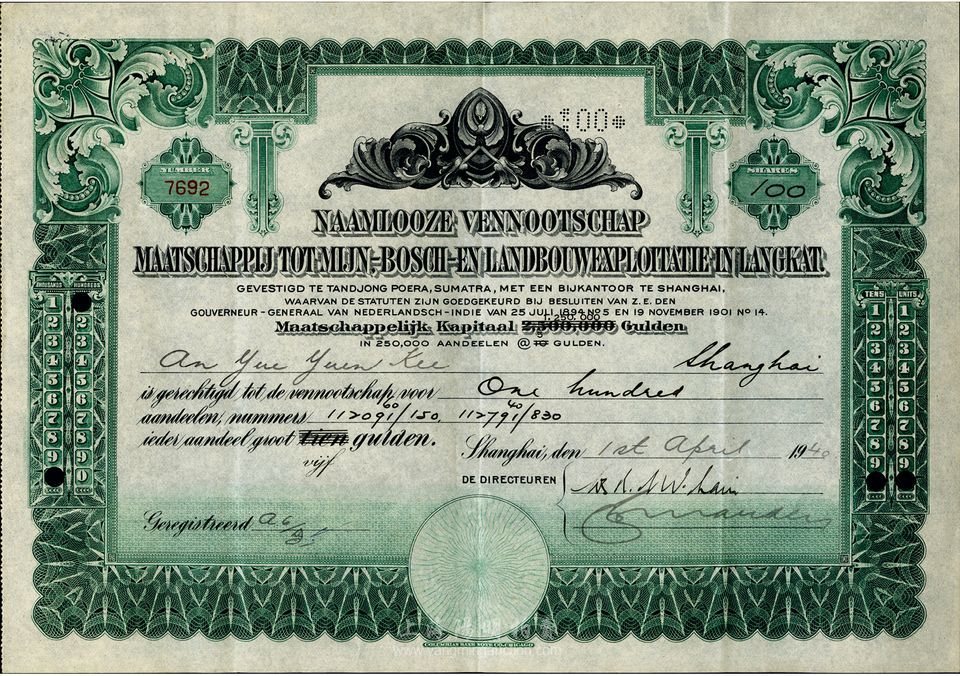 *100*
NUMBER
7692
SHARES
100
NAAMLOOZE VENNOOTSCHAP
MAATSCHAPPIJ TOT MIJN-, BOSCH- EN LANDBOUWEXPLOITATIE IN LANGKAT
GEVESTIGD TE TANDJONG POERA, SUMATRA, MET EEN BIJKANTOOR TE SHANGHAI,
WAARVAN DE STATUTEN ZIJN GOEDGEKEURD BIJ BESLUITEN VAN Z. E. DEN
GOUVERNEUR-GENERAAL VAN NEDERLANDSCH-INDIE VAN 25 JULI 1894 No 5 EN 19 NOVEMBER 1901 No 14.
1,250,000
Maatschappelijk Kapitaal 2,500,000 Gulden
IN 250,000 AANDEELEN @ 10 GULDEN.
An Yue Yuen Kee Shanghai
is gerechtigd tot de vennootschap voor One hundred
60 40
aandeelen, nummers 112091/150, 112791/830
ieder aandeel groot tien gulden.
vijf
Shanghai, den 1st April 1940
DE DIRECTEUREN
Geregistreerd
THOUSANDS HUNDREDS
1
2 2
3 3
4 4
5 5
6 6
7 7
8 8
9 9
0
TENS UNITS
1 1
2 2
3 3
4 4
5 5
6 6
7 7
8 8
9 9
COLUMBIAN BANK NOTE CO. CHICAGO
www.yangmingauction.com